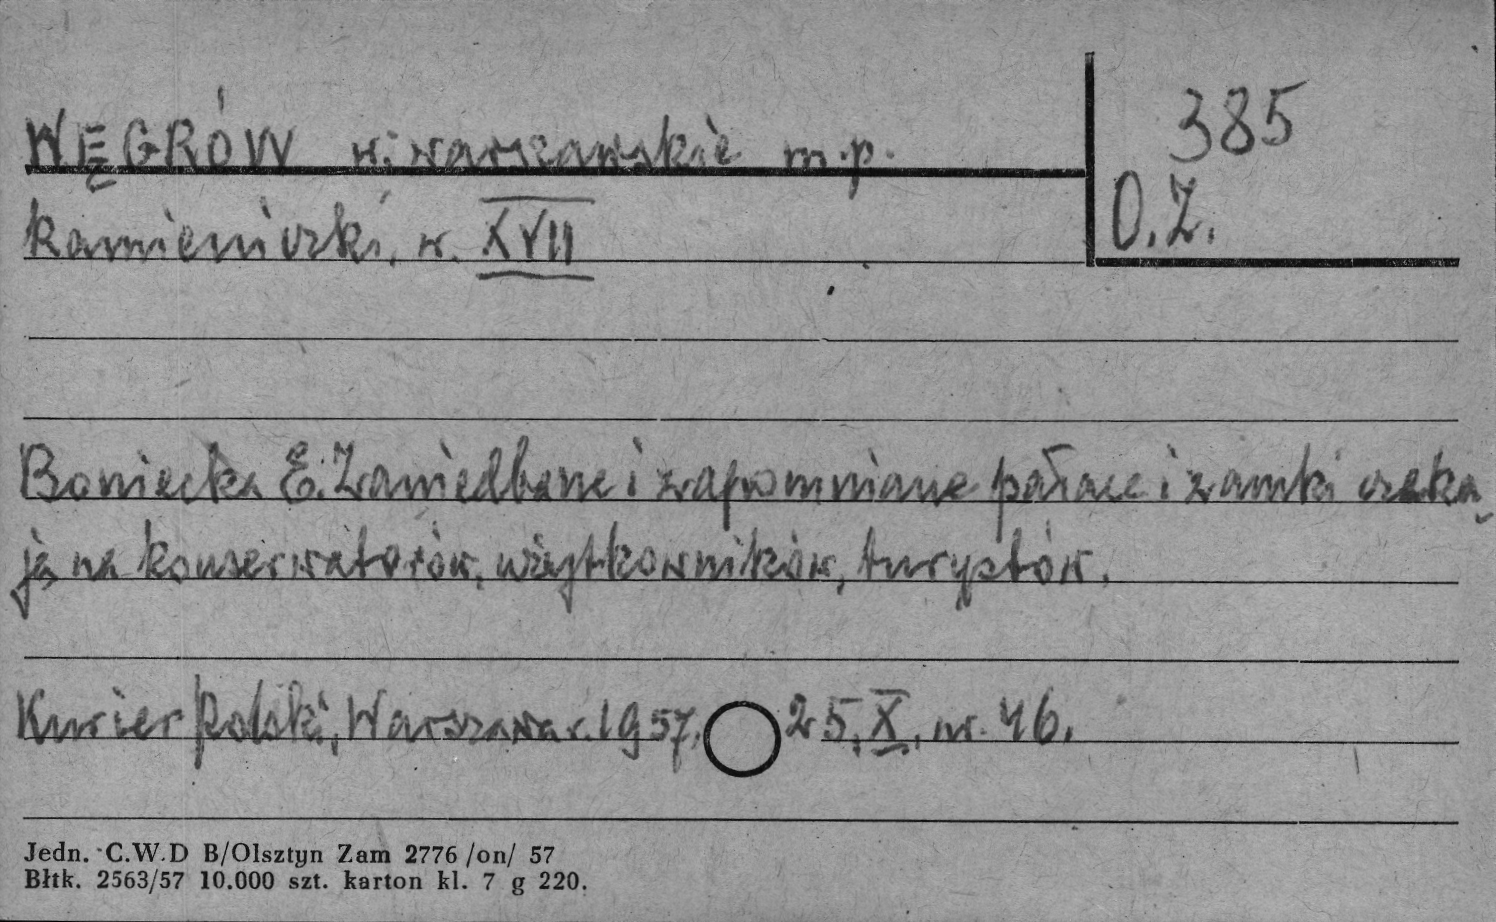 WĘGRÓW w. warszawskie m.p.
385
O.Z.
kamieniczki, w. XVII
Boniecka E. Zaniedbane i zapomniane pałace i zamki czeka
ją na konserwatorów, użytkowników, turystów.
Kurier Polski, Warszawa r. 1957, 25, X, nr. 46.
Jedn. C.W.D B/Olsztyn Zam 2776 /on/ 57
Błtk. 2563/57 10.000 szt. karton kl. 7 g 220.